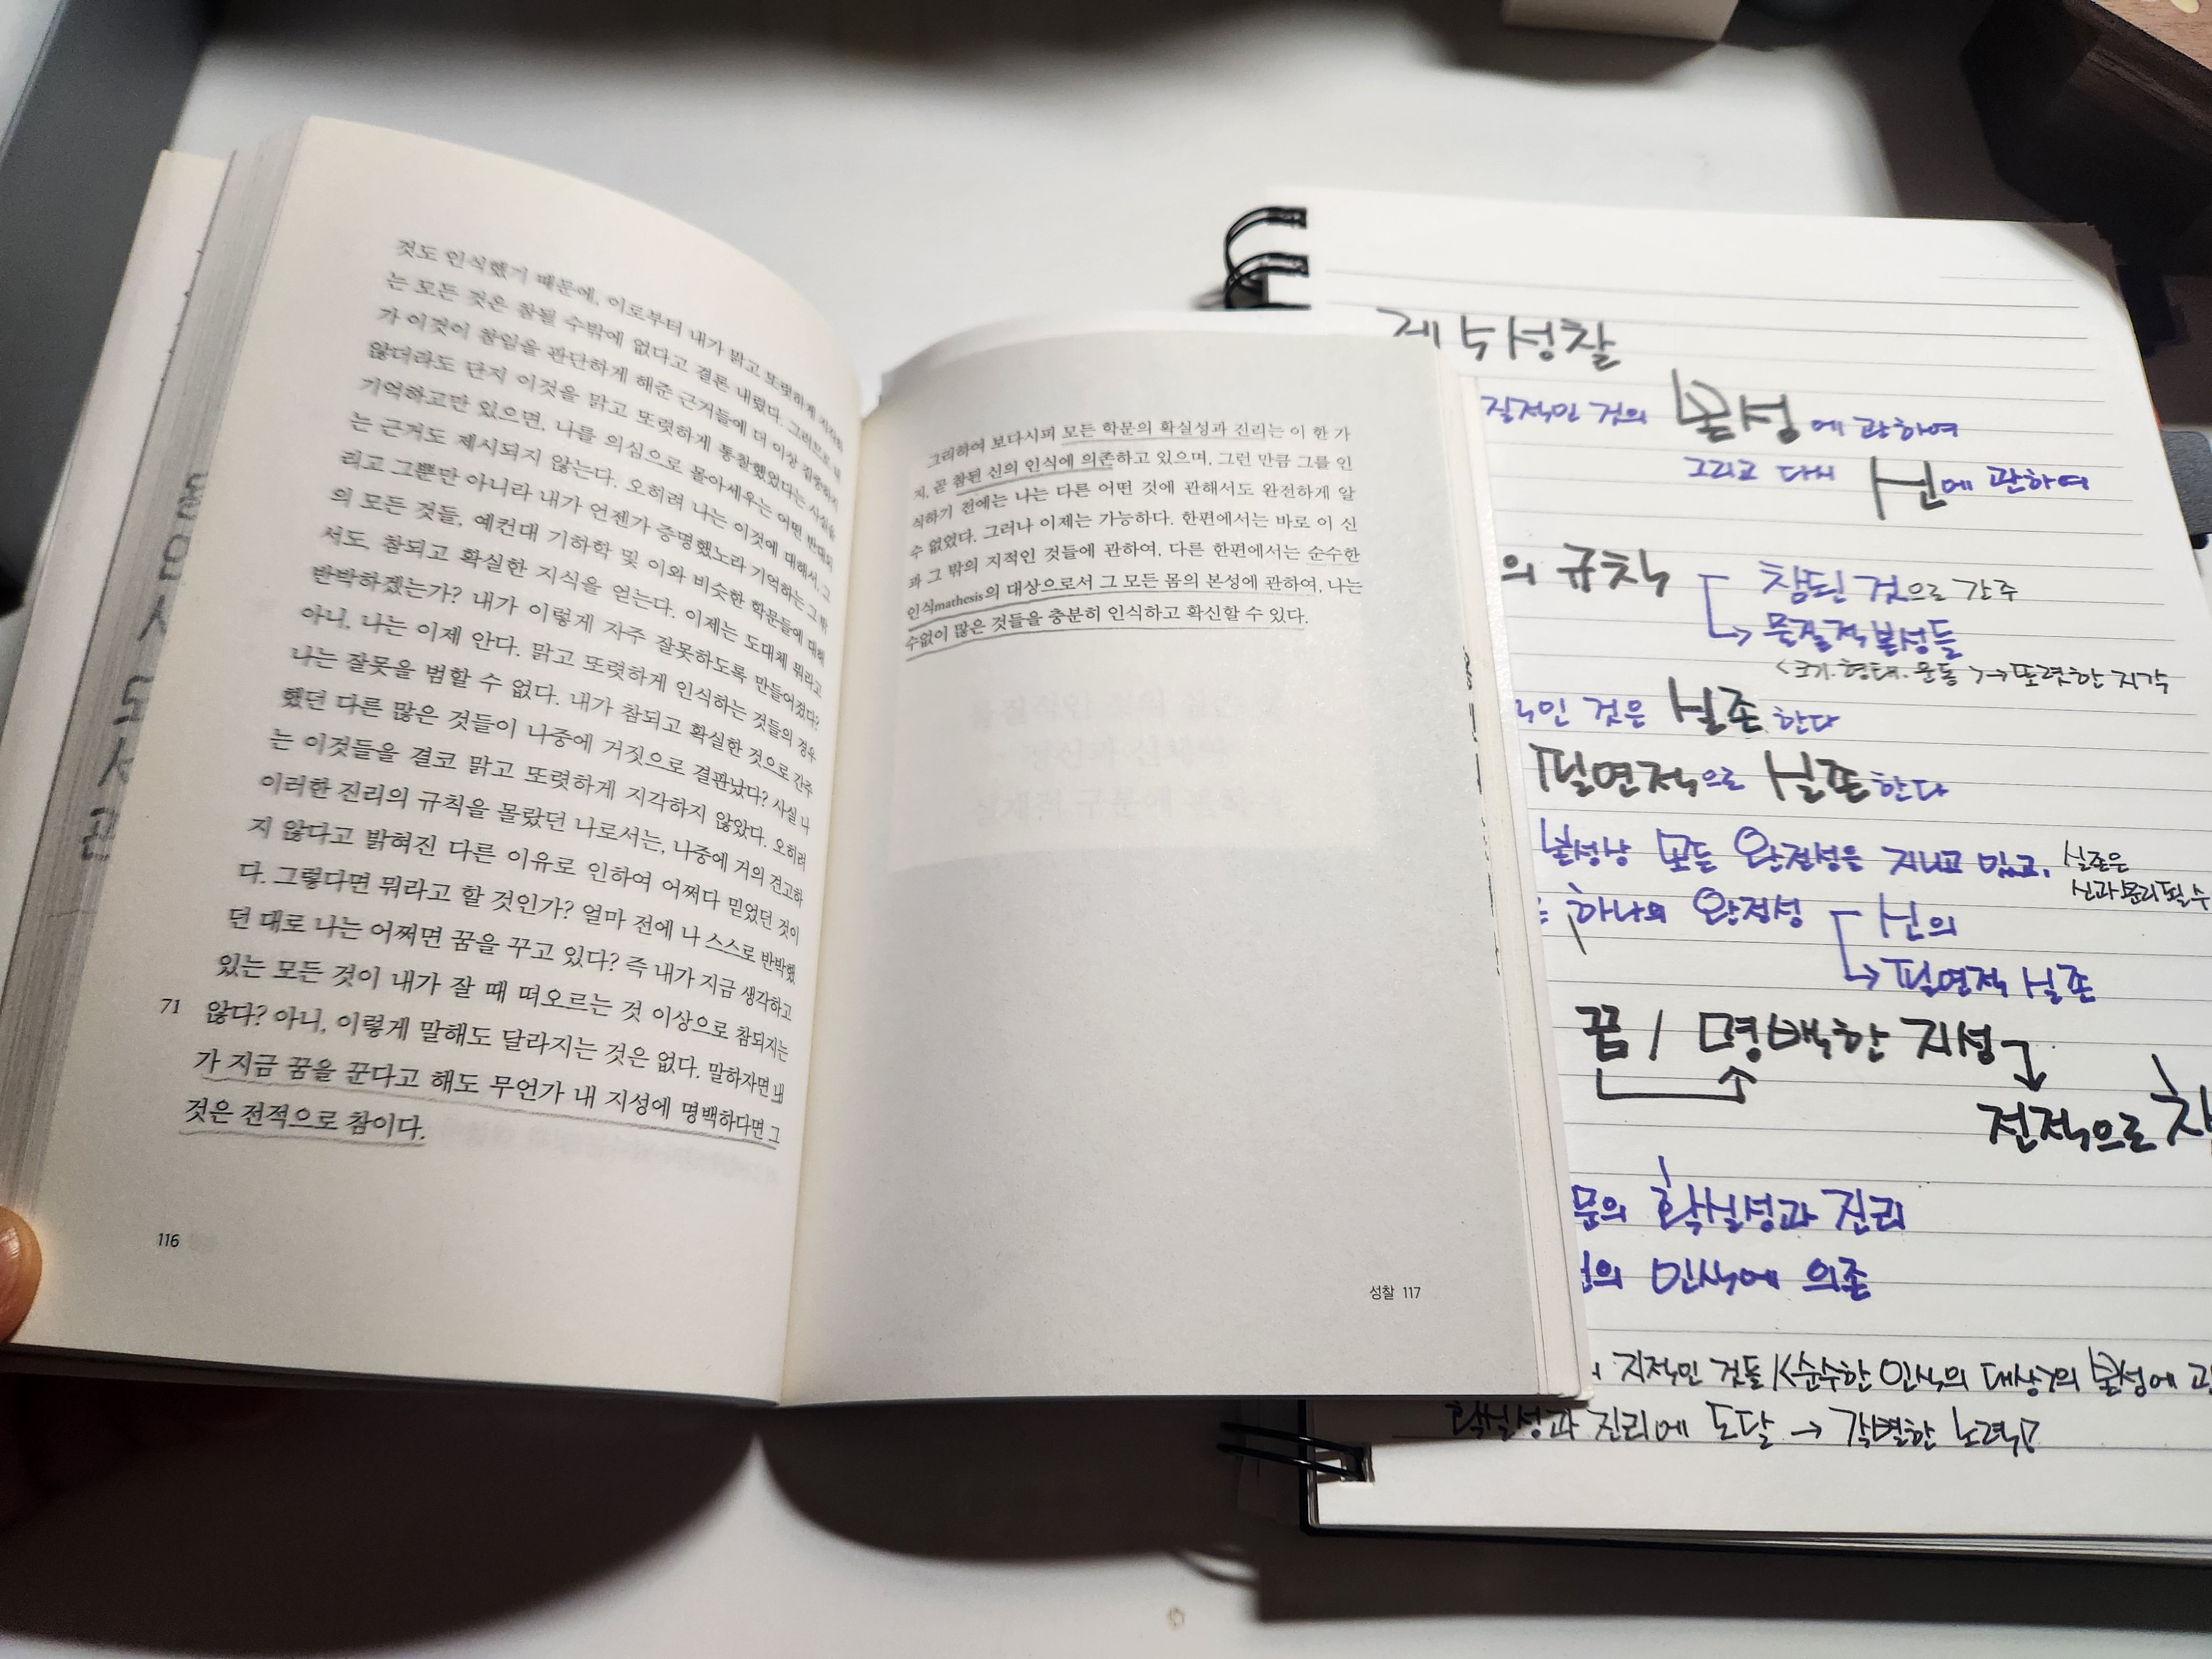 것도 인식했기 때문에, 이로부터 내가 맑고 또렷하게 지각하
는 모든 것은 참될 수밖에 없다고 결론 내렸다. 그러므로 내
가 이것이 참임을 판단하게 해준 근거들에 더 이상 집중하지
않더라도 단지 이것을 맑고 또렷하게 통찰했었다는 사실을
기억하고만 있으면, 나를 의심으로 몰아세우는 어떤 반대되
는 근거도 제시되지 않는다. 오히려 나는 이것에 대해서, 그
리고 그뿐만 아니라 내가 언젠가 증명했노라 기억하는 그 밖
의 모든 것들, 예컨대 기하학 및 이와 비슷한 학문들에 대해
서도, 참되고 확실한 지식을 얻는다. 이제는 도대체 뭐라고
반박하겠는가? 내가 이렇게 자주 잘못하도록 만들어졌다?
아니, 나는 이제 안다. 맑고 또렷하게 인식하는 것들의 경우
나는 잘못을 범할 수 없다. 내가 참되고 확실한 것으로 간주
했던 다른 많은 것들이 나중에 거짓으로 결판났다? 사실 나
는 이것들을 결코 맑고 또렷하게 지각하지 않았다. 오히려
이러한 진리의 규칙을 몰랐던 나로서는, 나중에 거의 견고하
지 않다고 밝혀진 다른 이유로 인하여 어쩌다 믿었던 것이
다. 그렇다면 뭐라고 할 것인가? 얼마 전에 나 스스로 반박했
던 대로 나는 어쩌면 꿈을 꾸고 있다? 즉 내가 지금 생각하고
있는 모든 것이 내가 잘 때 떠오르는 것 이상으로 참되지는
71 않다? 아니, 이렇게 말해도 달라지는 것은 없다. 말하자면 내
가 지금 꿈을 꾼다고 해도 무언가 내 지성에 명백하다면 그
것은 전적으로 참이다.
116
그리하여 보다시피 모든 학문의 확실성과 진리는 이 한 가
지, 곧 참된 신의 인식에 의존하고 있으며, 그런 만큼 그를 인
식하기 전에는 나는 다른 어떤 것에 관해서도 완전하게 알
수 없었다. 그러나 이제는 가능하다. 한편에서는 바로 이 신
과 그 밖의 지적인 것들에 관하여, 다른 한편에서는 순수한
인식mathesis의 대상으로서 그 모든 몸의 본성에 관하여, 나는
수없이 많은 것들을 충분히 인식하고 확신할 수 있다.
성찰 117
제5성찰
질적인 것의 본성에 관하여
그리고 다시 신에 관하여
의 규칙 참된 것으로 간주
→ 물질적 본성들
<크기·형태·운동> → 또렷한 지각
인 것은 실존한다
필연적으로 실존한다
본성상 모든 완전성을 지니고 있고, 실존은
신과 분리필수
하나의 완전성 신의
→ 필연적 실존
꿈 / 명백한 지성
전적으로 참
문의 확실성과 진리
의 인식에 의존
지적인 것들 / <순수한 인식의 대상>의 본성에 관
확실성과 진리에 도달 → 각별한 노력!